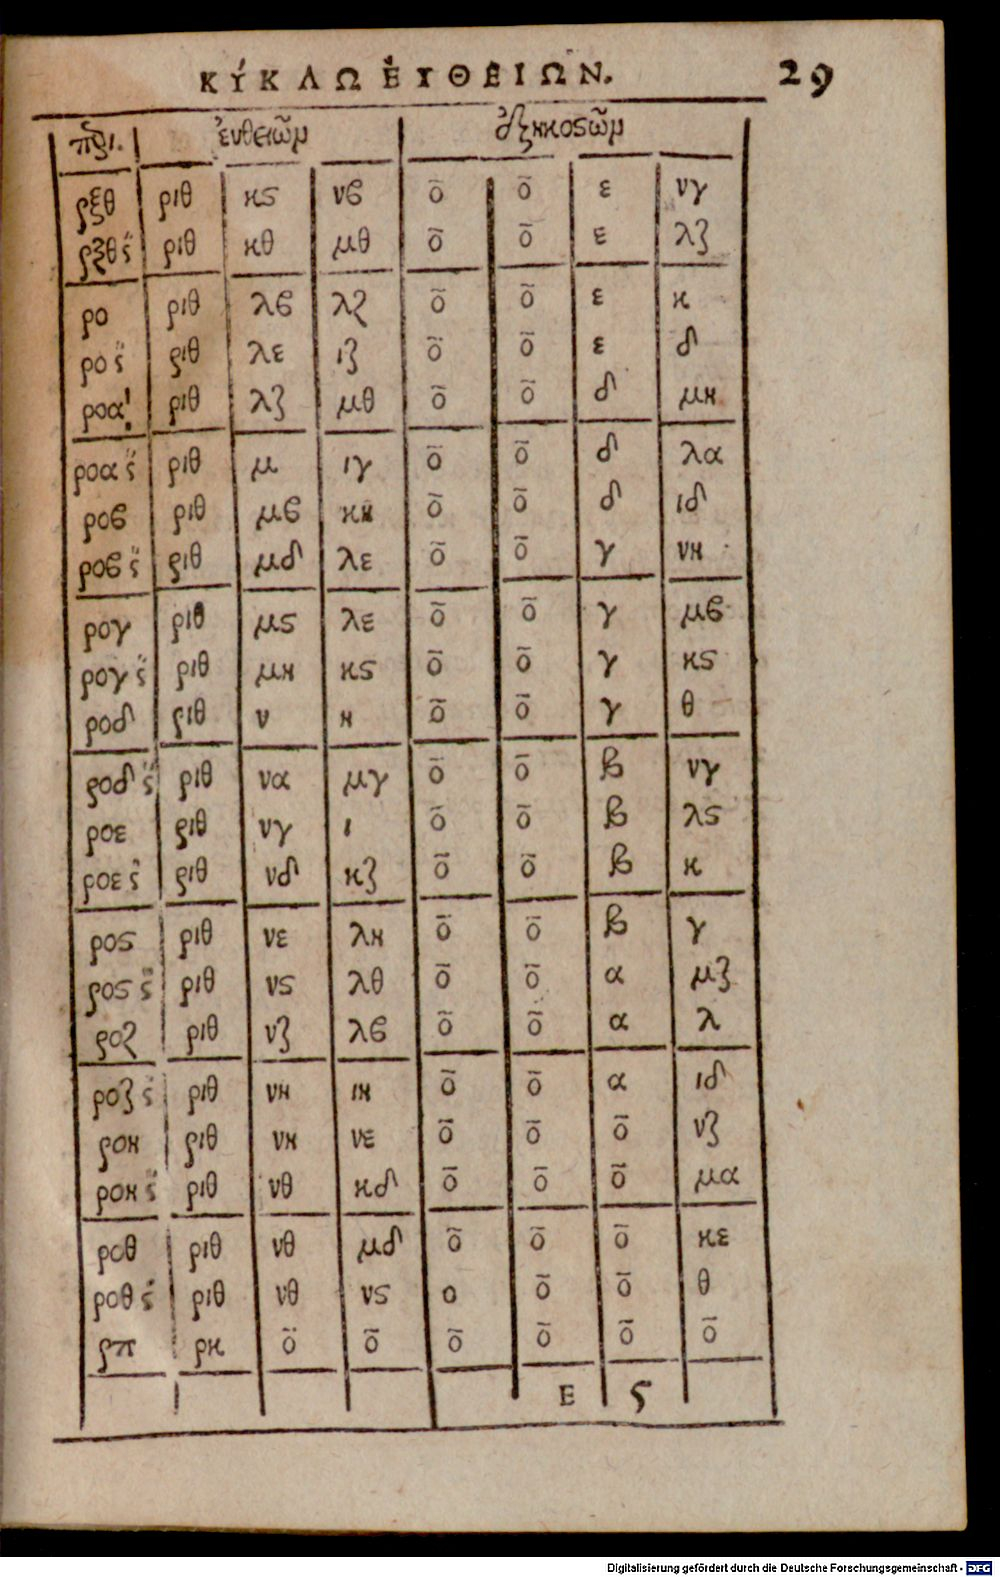 ΚΎΚΛΩ ἘΥΘΕΙΩ͂Ν. 29
πε͂ρι. | ἐυθειῶμ | ἑξηκοϛῶμ
ρξθ ριθ κϛ νβ ō ō ε νγ
ρξθ ϛ̋ ριθ κθ μθ ō ō ε λζ
ρο ριθ λβ λζ ō ō ε κ
ρο ϛ̋ ριθ λε ιζ ō ō ε δ
ροα ριθ λζ μθ ō ō δ μη
ροα ϛ̋ ριθ μ ιγ ō ō δ λα
ροβ ριθ μβ κη ō ō δ ιδ
ροβ ϛ̋ ριθ μδ λε ō ō γ νη
ρογ ριθ μϛ λε ō ō γ μβ
ρογ ϛ̋ ριθ μη κϛ ō ō γ κϛ
ροδ ριθ ν η ō ō γ θ
ροδ ϛ̋ ριθ να μγ ō ō β νγ
ροε ριθ νγ ι ō ō β λϛ
ροε ϛ̋ ριθ νδ κζ ō ō β κ
ροϛ ριθ νε λη ō ō β γ
ροϛ ϛ̋ ριθ νϛ λθ ō ō α μζ
ροζ ριθ νζ λβ ō ō α λ
ροζ ϛ̋ ριθ νη ιη ō ō α ιδ
ροη ριθ νη νε ō ō ō νζ
ροη ϛ̋ ριθ νθ κδ ō ō ō μα
ροθ ριθ νθ μδ ō ō ō κε
ροθ ϛ̋ ριθ νθ νϛ ο ō ō θ
ρπ ρκ ō ō ō ō ō ō
Ε ϛ
Digitalisierung gefördert durch die Deutsche Forschungsgemeinschaft - DFG